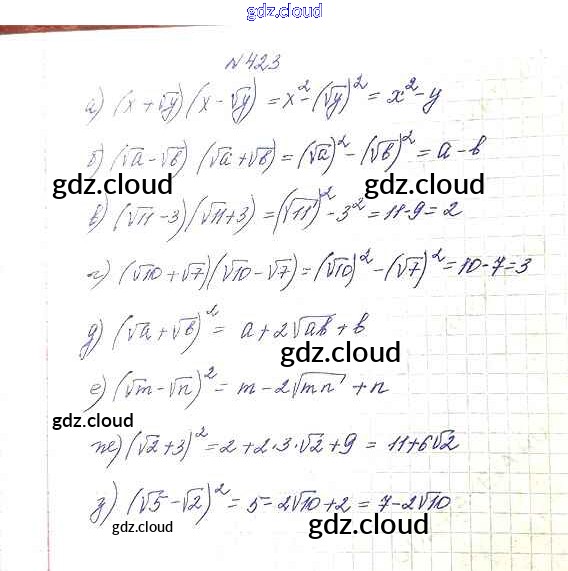 gdz.cloud
№423
а) (x + √y) (x - √y) = x² - (√y)² = x² - y
б) (√a - √b) (√a + √b) = (√a)² - (√b)² = a - b
gdz.cloud gdz.cloud
в) (√11 - 3) (√11 + 3) = (√11)² - 3² = 11 - 9 = 2
г) (√10 + √7) (√10 - √7) = (√10)² - (√7)² = 10 - 7 = 3
д) (√a + √b)² = a + 2√ab + b
gdz.cloud
е) (√m - √n)² = m - 2√mn + n
gdz.cloud
ж) (√2 + 3)² = 2 + 2·3·√2 + 9 = 11 + 6√2
з) (√5 - √2)² = 5 - 2√10 + 2 = 7 - 2√10
gdz.cloud gdz.cloud